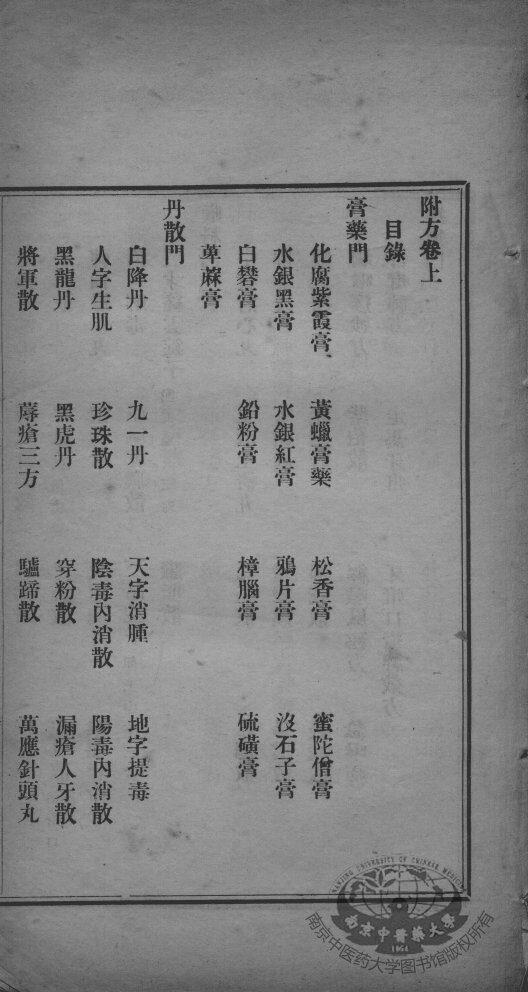 附方卷上
目錄
膏藥門
化腐紫霞膏 黃蠟膏藥 松香膏 蜜陀僧膏
水銀黑膏 水銀紅膏 鴉片膏 沒石子膏
白礬膏 鉛粉膏 樟腦膏 硫磺膏
萆蔴膏
丹散門
白降丹 九一丹 天字消腫 地字提毒
人字生肌 珍珠散 陰毒內消散 陽毒內消散
黑龍丹 黑虎丹 穿粉散 漏瘡人牙散
將軍散 蓐瘡三方 驢蹄散 萬應針頭丸
NANJING UNIVERSITY OF CHINESE MEDICINE
南京中醫藥大學
1954
南京中医药大学图书馆版权所有